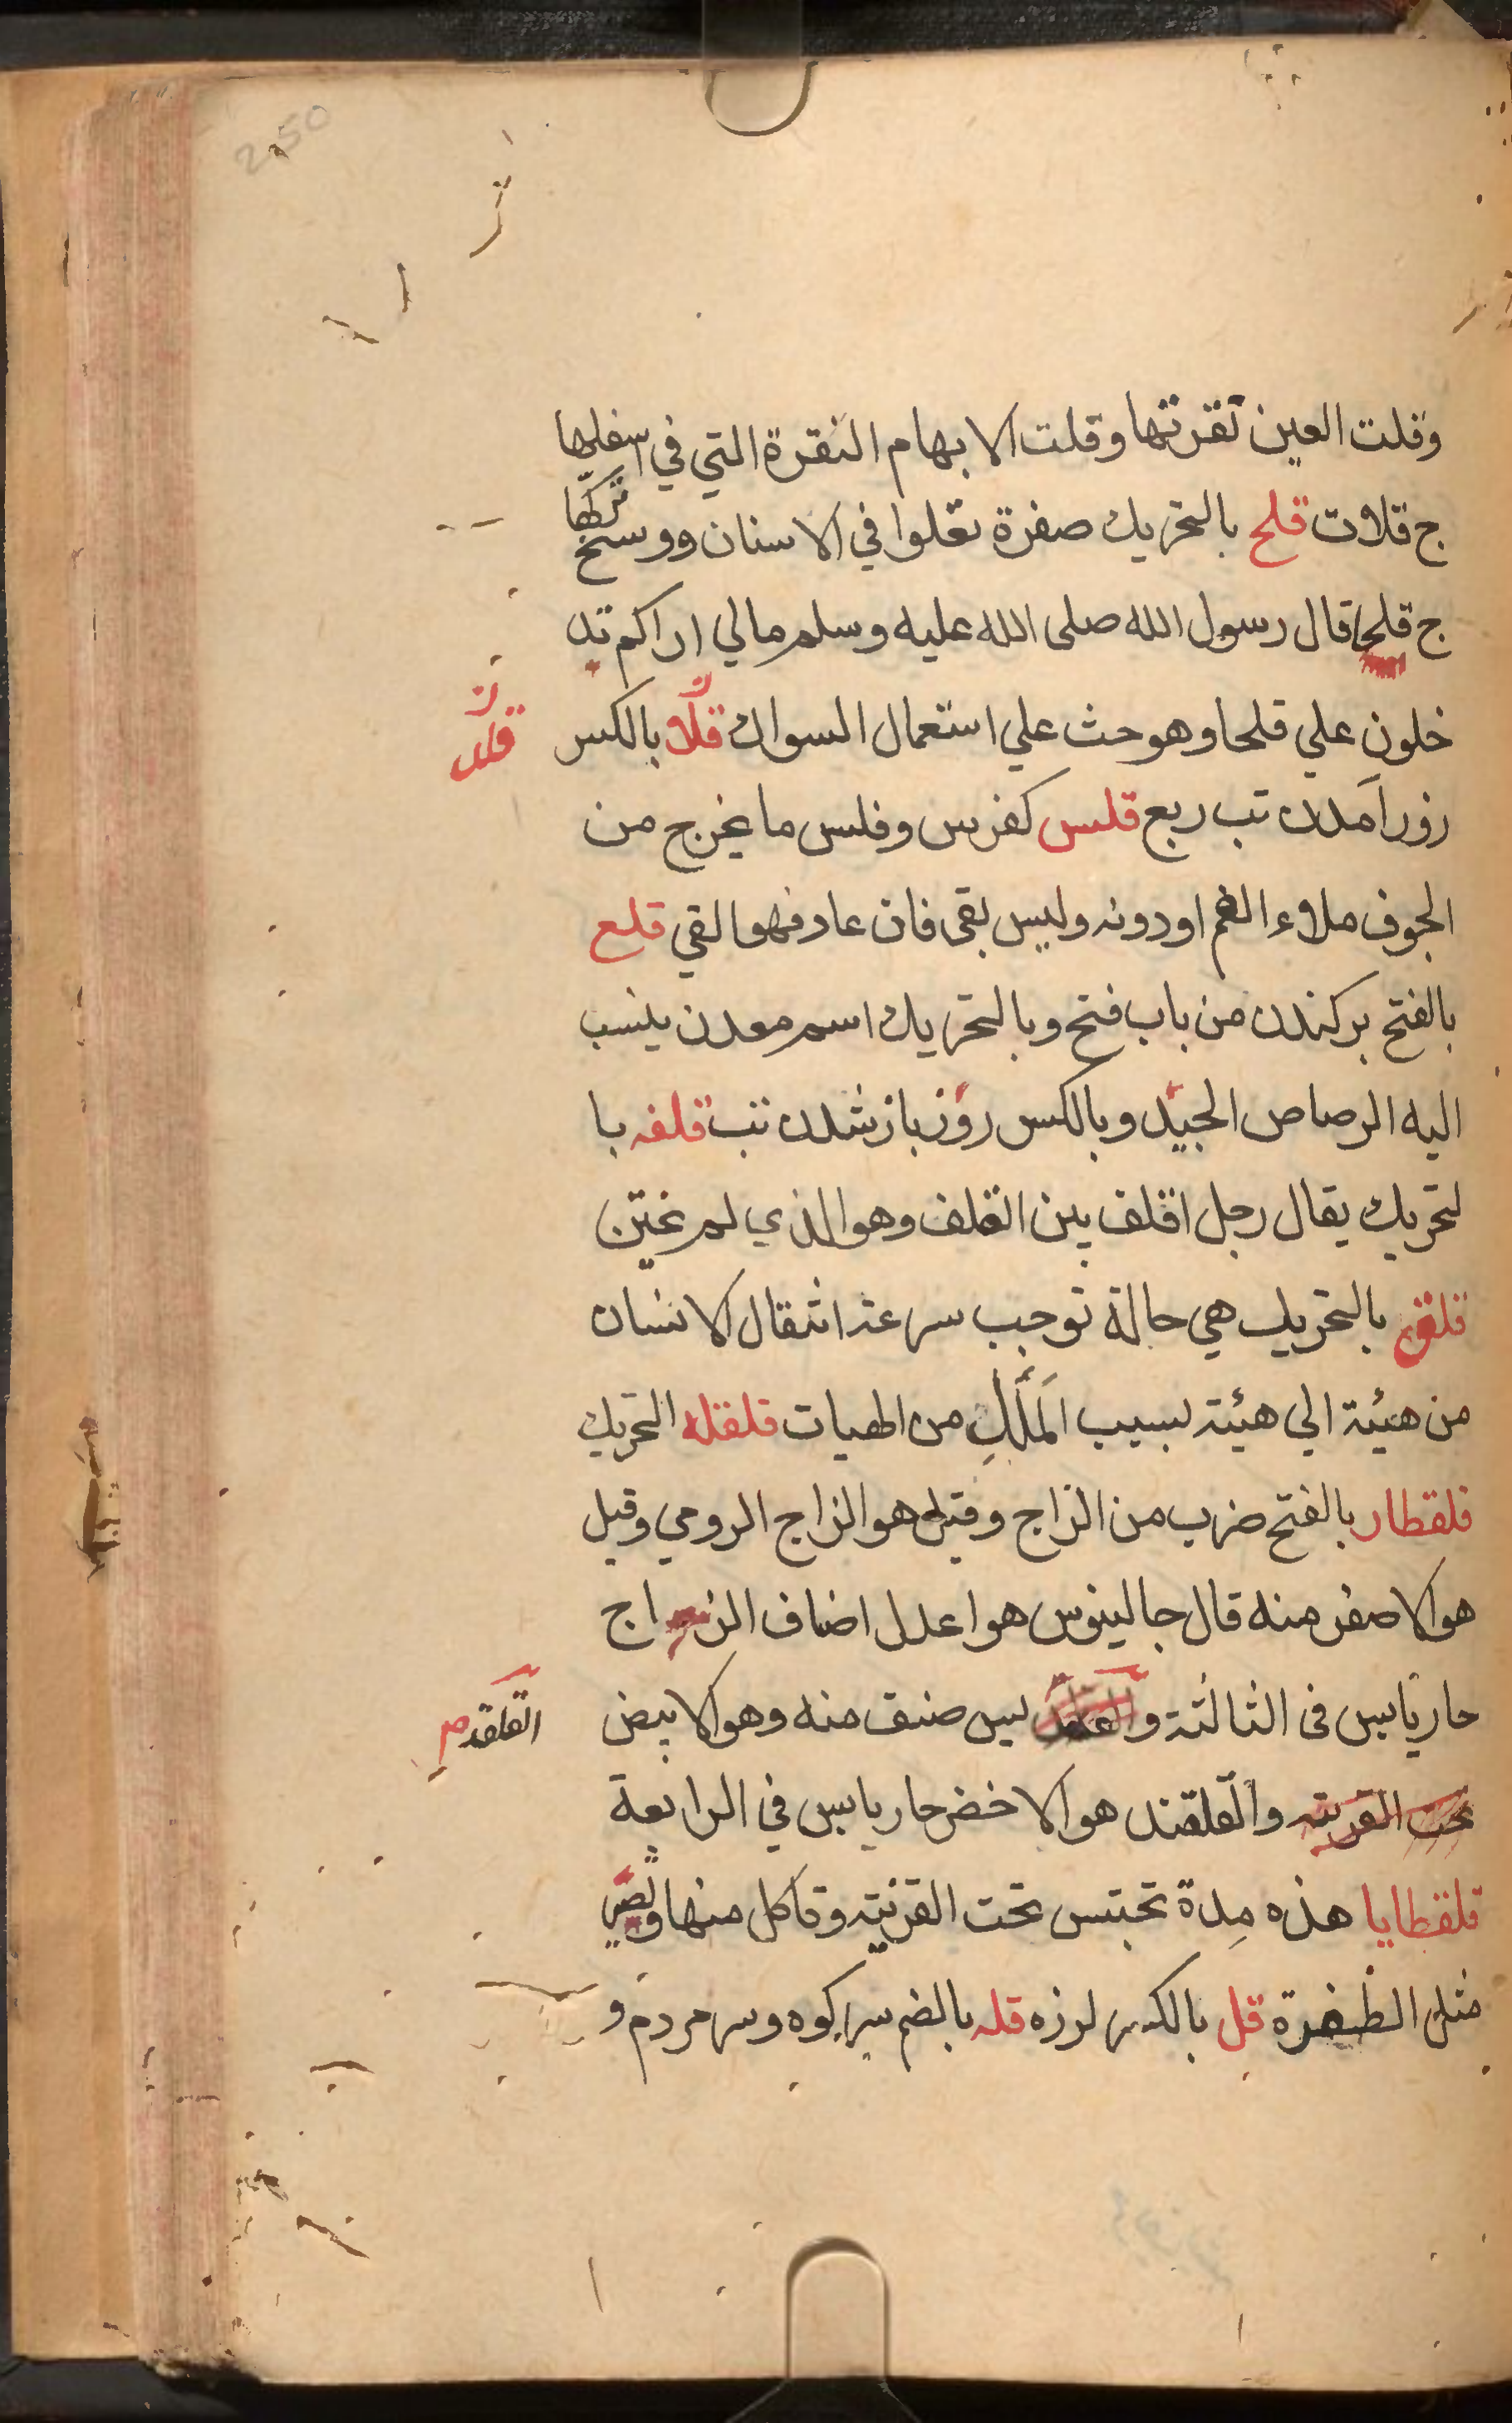 وقلت العين نقرتها وقلت الابهام النقرة التي في اسفلها
ج قلات قلح بالتحريك صفرة تعلوا في الاسنان ووسخ تركبها
ج قلحا قال رسول الله صلى الله عليه وسلم مالي اراكم تد
خلون علي قلحا وهو حث علي استعمال السواك قلا بالكس
روز آمدن تب ربع قلس كفرس وفلس ما يخرج من
الجوف ملاء الفم او دونه وليس بقى فان عاد فهو القي قلع
بالفتح بركندن من باب فتح وبالتحريك اسم معدن ينسب
اليه الرصاص الجيد وبالكس روز باز شدن تب قلفه با
لتحريك يقال رجل اقلف بين القلف وهو الذي لم يختن
قلق بالتحريك هي حالة توجب سرعة انتقال الانسان
من هيئة الي هيئة بسبب الملل من الهيات قلقله التحريك
قلقطار بالفتح ضرب من الزاج وقيل هو الزاج الرومي وقيل
هو الاصفر منه قال جالينوس هو اعدل اضاف الزاج
حار يابس في الثالثة و ليس صنف منه وهو الابيض
القلقديس
تحت القرنيه والقلقند هو الاخضر حار يابس في الرابعة
قلقطايا هذه مدة تحتبس تحت القرنيه وتاكل منها وتصير
مثل الظفرة قل بالكس لرزه قله بالضم سر كوه وسر مردم و